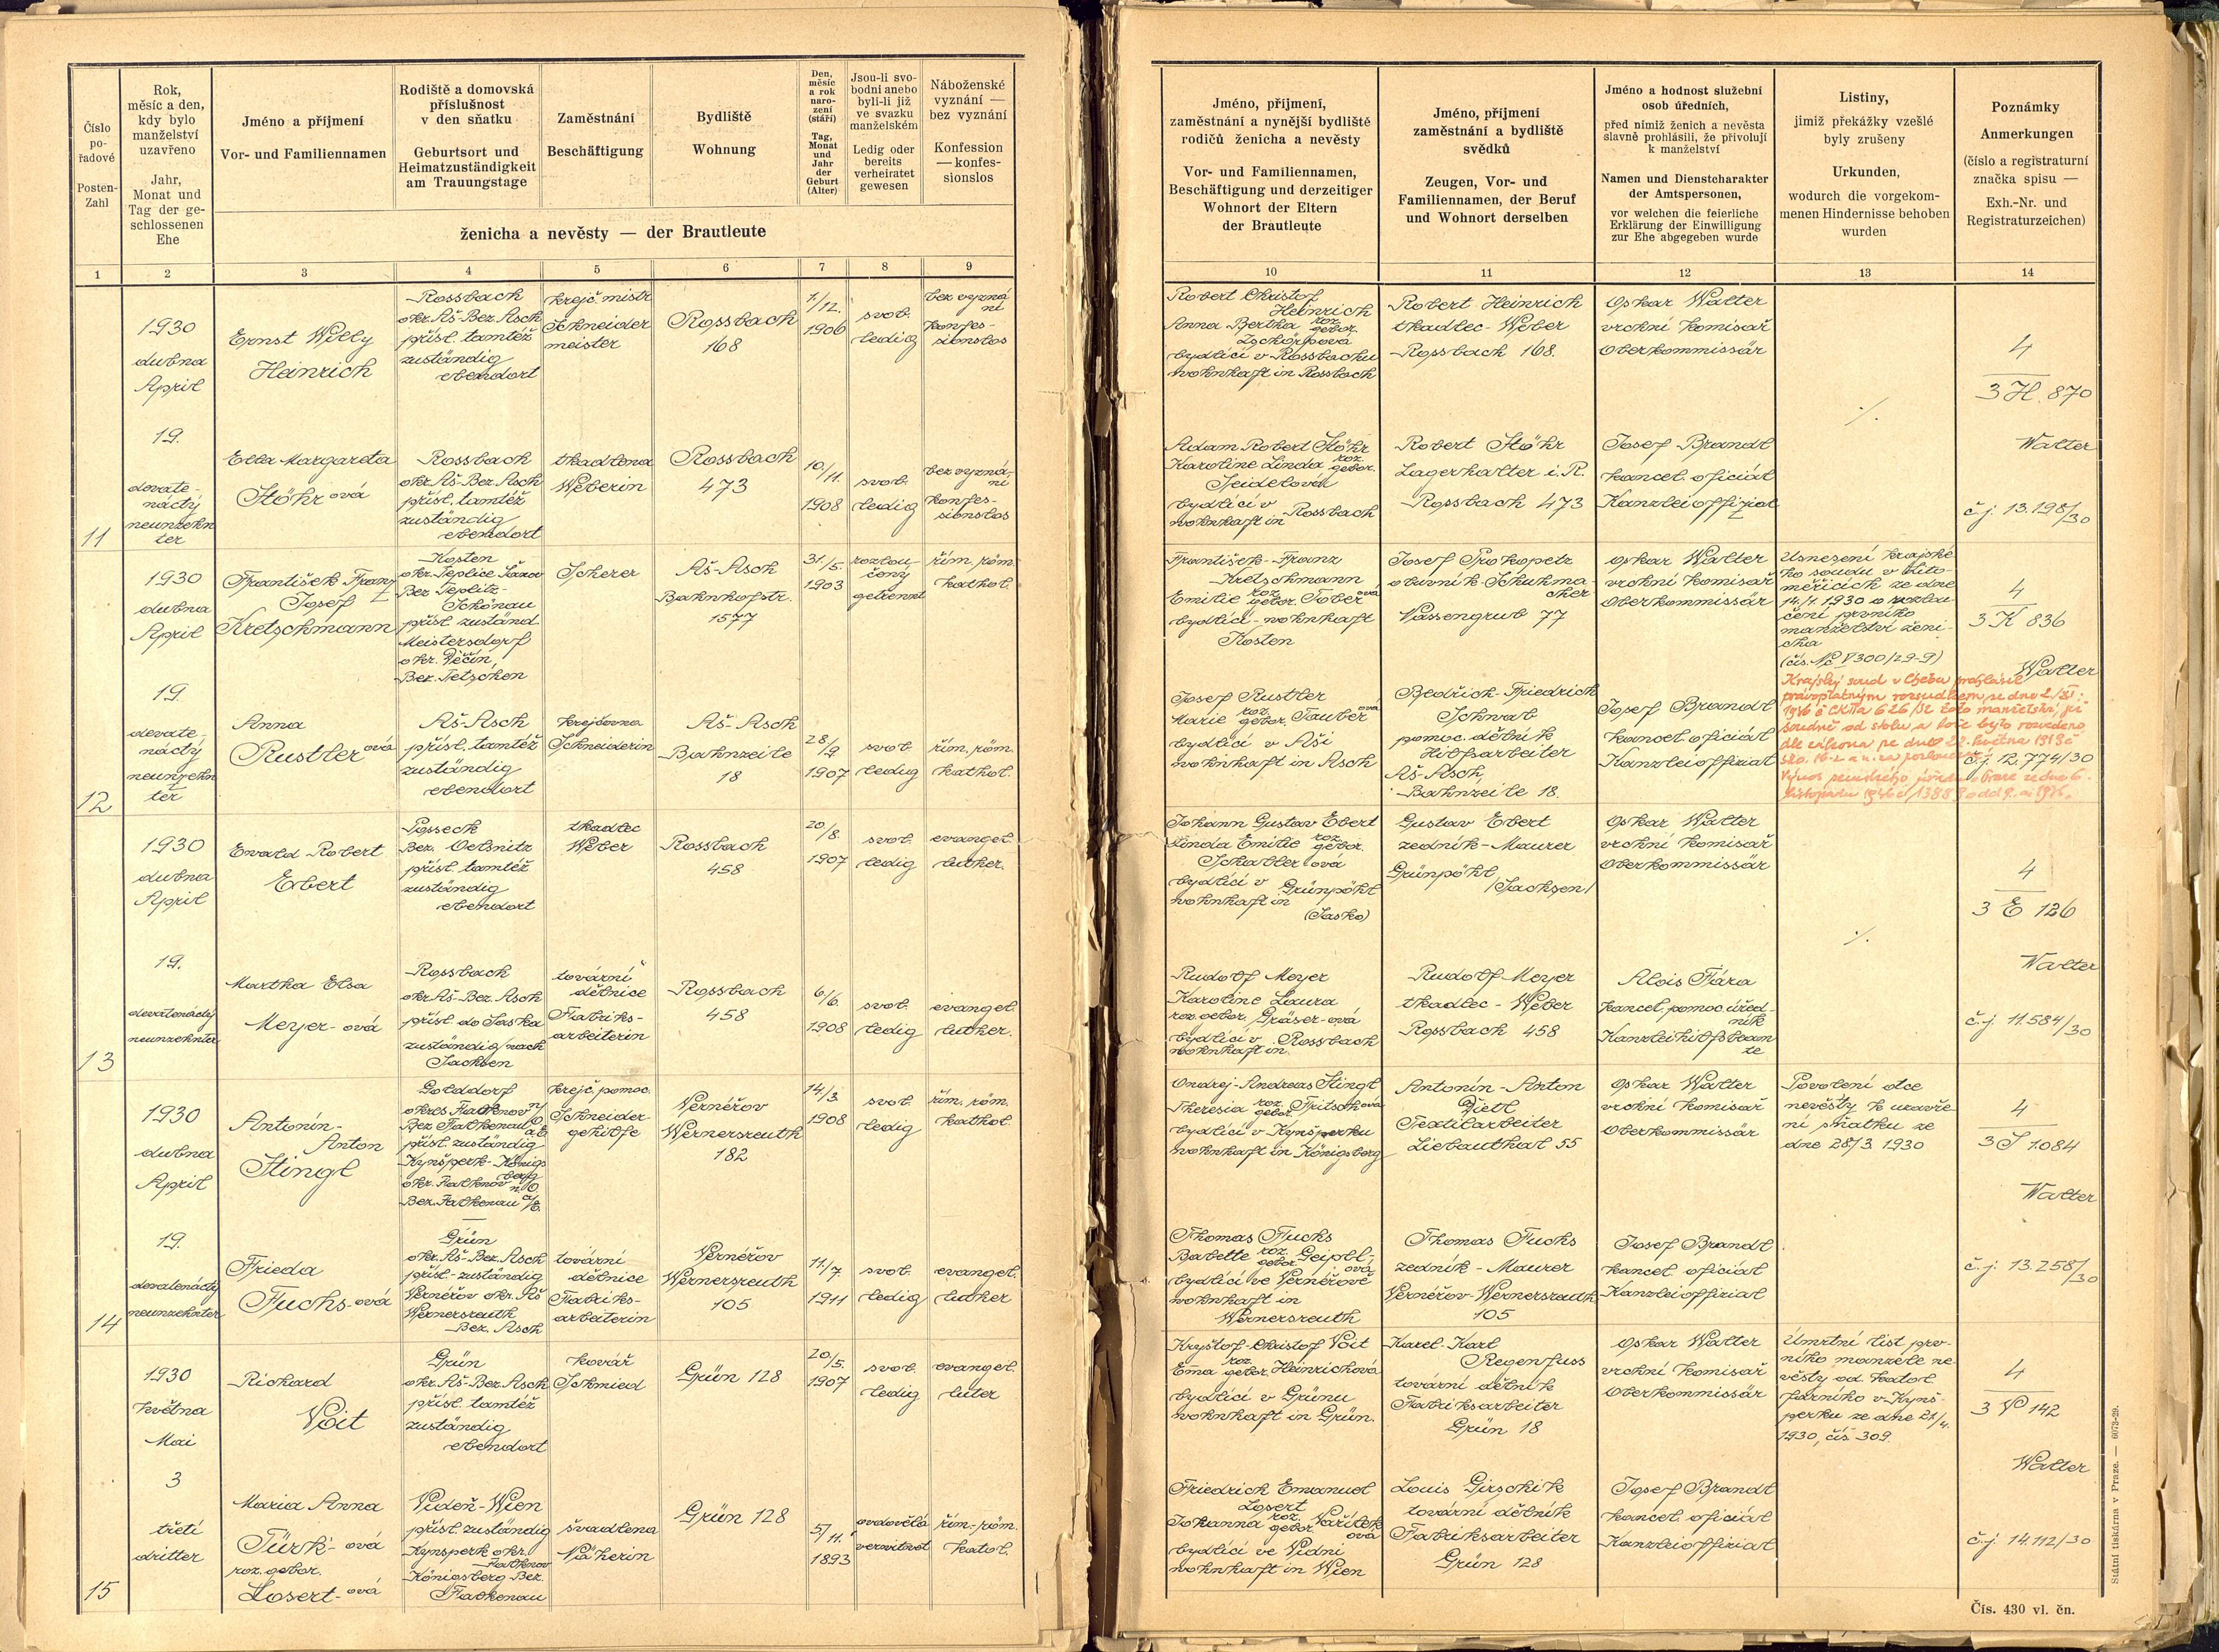 Číslo
po-
řadové
Posten-
Zahl
Rok,
měsíc a den,
kdy bylo
manželství
uzavřeno
Jahr,
Monat und
Tag der ge-
schlossenen
Ehe
Jméno a příjmení
Vor- und Familiennamen
Rodiště a domovská
příslušnost
v den sňatku
Geburtsort und
Heimatzuständigkeit
am Trauungstage
Zaměstnání
Beschäftigung
Bydliště
Wohnung
Den,
měsíc
a rok
naro-
zení
(stáří)
Tag,
Monat
und
Jahr
der
Geburt
(Alter)
Jsou-li svo-
bodni anebo
byli-li již
ve svazku
manželském
Ledig oder
bereits
verheiratet
gewesen
Náboženské
vyznání —
bez vyznání
Konfession
— konfes-
sionslos
ženicha a nevěsty — der Brautleute
1 2 3 4 5 6 7 8 9
1930
dubna
April
19.
devate-
náctý
neunzehn
ter
11
Ernst Willy
Heinrich
Rossbach
okr. Aš-Bez. Asch
přísl. tamtéž
zuständig
ebendort
krejč. mistr
Schneider
meister
Rossbach
168
1/12.
1906
svob.
ledig
bez vyzná
ní
konfes-
sionslos
Ella Margareta
Stöhr ová
Rossbach
okr. Aš-Bez. Asch
přísl. tamtéž
zuständig
ebendort
tkadlena
Weberin
Rossbach
473
10/11.
1908
svob.
ledig
bez vyzná-
ní
konfes-
sionslos
1930
dubna
April
19.
devate-
náctý
neunzehn
ter
12
František Franz
Josef
Kretschmann
Kosten
okr. Teplice Šanov
Bez. Teplitz-
Schönau
přísl. zuständ.
Meistersdorf
okr. Děčín,
Bez. Tetschen
Scherer
Aš-Asch
Bahnhofstr.
1577
31/5.
1903
rozlou-
čený
getrennt
řím. röm.
kathol.
Anna
Rustler ová
Aš-Asch
přísl. tamtéž
zuständig
ebendort
krejčovna
Schneiderin
Aš-Asch
Bahnzeile
18
28/9
1907
svob.
ledig
řím. röm.
kathol.
1930
dubna
April
19.
devatenáctý
neunzehnter
13
Ewald Robert
Ebert
Posseck
Bez. Oelsnitz
přísl. tamtéž
zuständig
ebendort
tkadlec
Weber
Rossbach
458
20/8.
1907
svob.
ledig
evangel.
luther.
Martha Elsa
Meyer-ová
Rossbach
okr. Aš-Bez. Asch
přísl. do Saska
zuständig nach
Sachsen
tovární
dělnice
Fabriks-
arbeiterin
Rossbach
458
6/6.
1908
svob.
ledig
evangel.
luther.
1930
dubna
April
19.
devatenáctý
neunzehnter
14
Antonín-
Anton
Stingl
Golddorf
okres Falknov n/O
Bez. Falkenau a/E
přísl. zuständig
Kynšperk-Königs
berg
okr. Falknov n. O.
Bez. Falkenau a/E.
krejč. pomoc.
Schneider-
gehilfe
Vernéřov
Wernersreuth
182
14/3
1908
svob.
ledig
řím. röm.
kathol.
Frieda
Fuchs-ová
Grün
okr. Aš-Bez. Asch
přísl.-zuständig
Vernéřov okr. Aš
Wernersreuth
Bez. Asch
tovární
dělnice
Fabriks-
arbeiterin
Vernéřov
Wernersreuth
105
11/7.
1911
svob.
ledig
evangel.
luther
1930
května
Mai
3
třetí
dritter
15
Richard
Voit
Grün
okr. Aš-Bez. Asch
přísl. tamtéž
zuständig
ebendort
kovář
Schmied
Grün 128
20/5.
1907
svob.
ledig
evangel.
luter
Maria Anna
Türk-ová
roz. gebor.
Losert-ová
Videň-Wien
přísl. zuständig
Kynsperk okr.
Falknov
Königsberg Bez.
Falkenau
švadlena
Näherin
Grün 128
5/11.
1893
ovdovělá
verwitwet
řím.-röm.
katol.
Jméno, příjmení,
zaměstnání a nynější bydliště
rodičů ženicha a nevěsty
Vor- und Familiennamen,
Beschäftigung und derzeitiger
Wohnort der Eltern
der Brautleute
Jméno, příjmení
zaměstnání a bydliště
svědků
Zeugen, Vor- und
Familiennamen, der Beruf
und Wohnort derselben
Jméno a hodnost služební
osob úředních,
před nimiž ženich a nevěsta
slavně prohlásili, že přivolují
k manželství
Namen und Dienstcharakter
der Amtspersonen,
vor welchen die feierliche
Erklärung der Einwilligung
zur Ehe abgegeben wurde
Listiny,
jimiž překážky vzešlé
byly zrušeny
Urkunden,
wodurch die vorgekom-
menen Hindernisse behoben
wurden
Poznámky
Anmerkungen
(číslo a registraturní
značka spisu —
Exh.-Nr. und
Registraturzeichen)
10 11 12 13 14
Robert Christof
Heinrich
Anna Bertha roz. gebor.
Zschörpová
bydlící v Rossbachu
wohnhaft in Rossbach
Robert Heinrich
tkadlec-Weber
Rossbach 168.
Oskar Walter
vrchní komisař
Oberkommissär
4
3 H. 870
Walter
č.j. 13.198/30
Adam Robert Stöhr
Karoline Linda roz. gebor.
Seidelová
bydlící v
wohnhaft in Rossbach
Robert Stöhr
Lagerhalter i. R.
Rossbach 473
Josef Brandl
kancel. oficiál
Kanzleioffizial
František-Franz
Kretschmann
Emilie roz. gebor. Tober ová
bydlící-wohnhaft
Kosten
Josef Prokopetz
obuvník-Schuhma-
cher
Wassengrub 77
Oskar Walter
vrchní komisař
Oberkommissär
Usnesení krajské-
ho soudu v Lito-
měřicích ze dne
14./1. 1930 o rozlou-
čení prvního
manželství ženi-
cha
(čís. Nc V 300/29-9)
Krajský soud v Chebu prohlásil
pravoplatným rozsudkem ze dne
4
3 K 836
Walter
č.j. 12.774/30
Josef Rustler
Marie roz. gebor. Tauber ová
bydlící v Aši
wohnhaft in Asch
Bedřich-Friedrich
Schwab
pomoc. dělník
Hilfsarbeiter
Aš-Asch,
Bahnzeile 18.
Josef Brandl
kancel. oficiál
Kanzleioffizial
Johann Gustav Ebert
Linda Emilie roz. gebor.
Schaller ová
bydlící v
wohnhaft in Grünpöhl
(Sasko)
Gustav Ebert
zedník-Maurer
Grünpöhl
/Sachsen/
Oskar Walter
vrchní komisař
Oberkommissär
4
3 E 126
Walter
č.j. 11584/30
Rudolf Meyer
Karoline Laura
roz. gebor. Gräser-ová
bydlící v
wohnhaft in Rossbach
Rudolf Meyer
tkadlec-Weber
Rossbach 458
Alois Fiára
kancel. pomoc. úřed-
ník
Kanzleihilfsbeam
te
Ondrej-Andreas Stingl
Theresia roz. gebor. Fritsch ová
bydlící v Kynšperku
wohnhaft in Königsberg
Antonín-Anton
Dietl
Textilarbeiter
Liebauthal 55
Oskar Walter
vrchní komisař
Oberkommissär
Povolení otce
nevěsty k uzavře-
ní sňatku ze
dne 28/3. 1930
4
3 S 1.084
Walter
č.j. 13.258/30
Thomas Fuchs
Babette roz. gebor. Geipel-
ová
bydlící ve Vernéřově
wohnhaft in
Wernersreuth
Thomas Fuchs
zedník-Maurer
Vernéřov-Wernersreuth
105
Josef Brandl
kancel. oficiál
Kanzleioffizial
Kryštof-Christof Voit
Emma roz. gebor. Heinrichová
bydlící v Grünu
wohnhaft in Grün.
Karel-Karl
Regenfuss
tovární dělník
Fabriksarbeiter
Grün 18
Oskar Walter
vrchní komisař
Oberkommissär
Úmrtní list prv-
ního manžela ne-
věsty od katol.
farního v Kynš-
perku ze dne 21/4.
1930, čís 309.
4
3 V 142
Walter
č.j. 14.112/30
Friedrich Emanuel
Losert
Johanna roz. gebor. Vařílek
ová
bydlící ve Vídni
wohnhaft in Wien
Louis Girschik
tovární dělník
Fabriksarbeiter
Grün 128
Josef Brandl
kancel. oficiál
Kanzleioffizial
Čís. 430 vl. čn.
Státní tiskárna v Praze. — 6073-29.